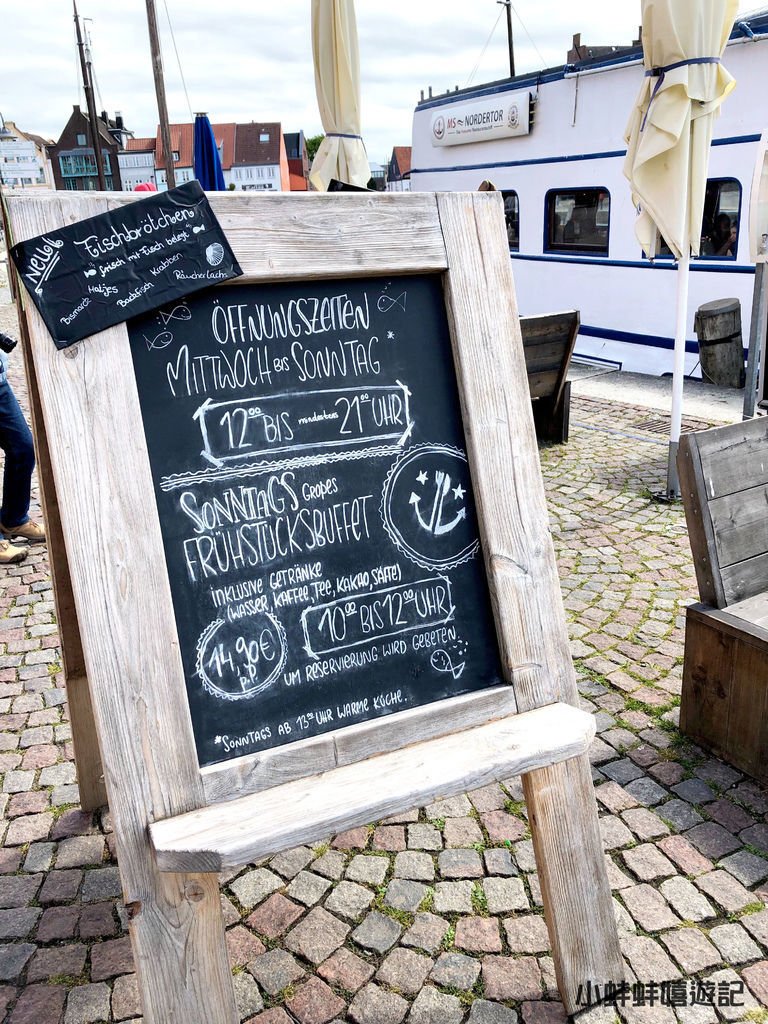 MS NORDERTOR
Neu
Fischbrötchen
frisch mit Fisch belegt
Bismarck Matjes Backfisch Krabben Räucherlachs
ÖFFNUNGSZEITEN
MITTWOCH BIS SONNTAG *
12⁰⁰ BIS mindestens 21⁰⁰ UHR
SONNTAGS Großes
FRÜHSTÜCKSBUFFET
INKLUSIVE GETRÄNKE
(WASSER, KAFFEE, TEE, KAKAO, SÄFTE)
10⁰⁰ BIS 12⁰⁰ UHR
14,90€
p.P.
UM RESERVIERUNG WIRD GEBETEN.
*SONNTAGS AB 13⁰⁰ UHR WARME KÜCHE.
小蚌蚌嘻遊記